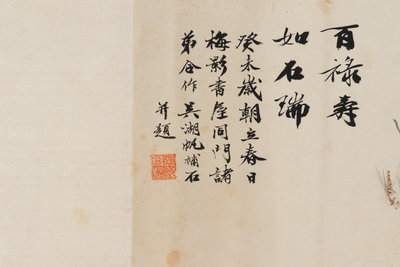 百禄寿
如石瑞
癸未歲朝立春日
梅影書屋同門諸
弟合作 吴湖帆補石
并題